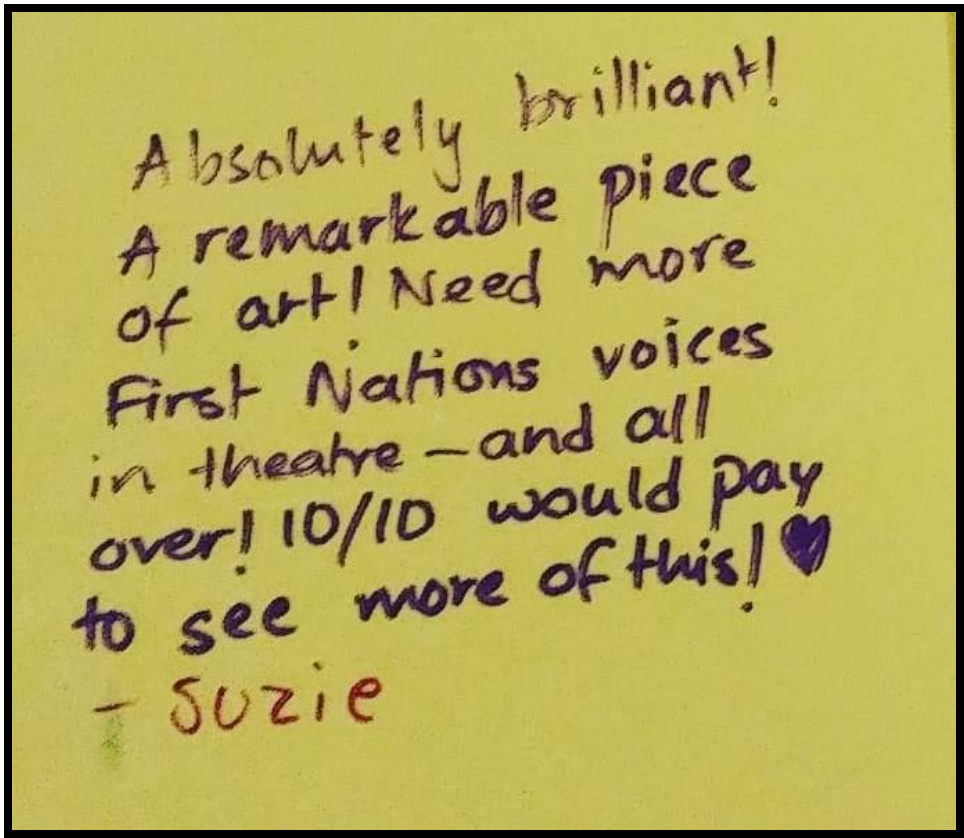 Absolutely brilliant!
A remarkable piece
of art! Need more
First Nations voices
in theatre – and all
over! 10/10 would pay
to see more of this! ♥
- Suzie